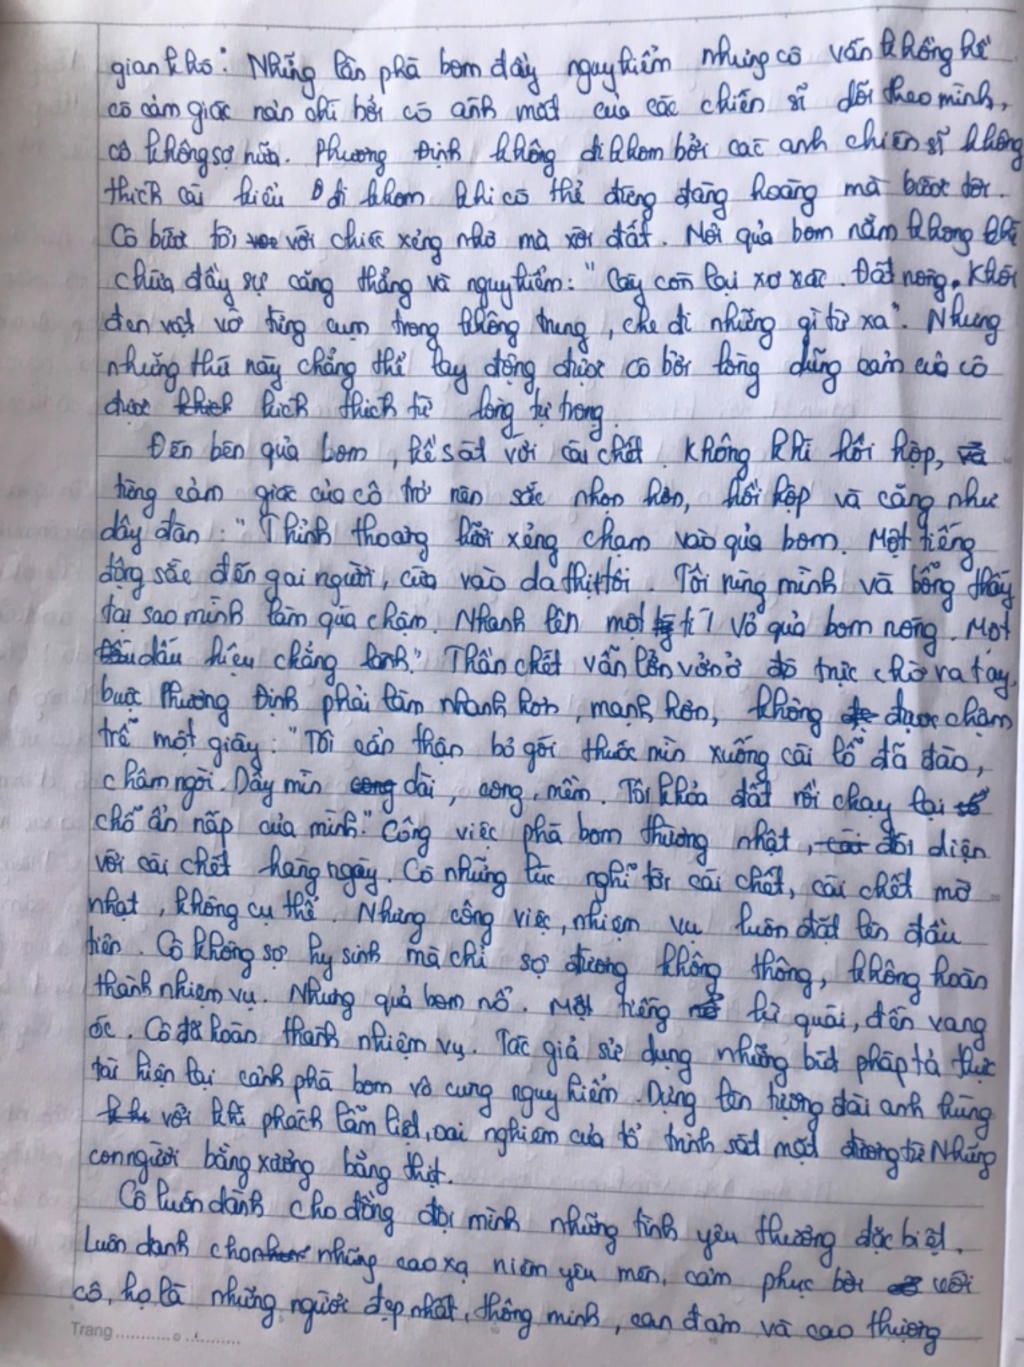 gian khó. Những lần phá bom đầy nguy hiểm nhưng cô vẫn không hề
có cảm giác nản chí bởi có ánh mắt của các chiến sĩ dõi theo mình,
cô không sợ nữa. Phương Định không đi khom bởi các anh chiến sĩ không
thích cái kiểu đi khom khi có thể đứng đàng hoàng mà bước tới.
Cô bước tới với chiếc xẻng nhỏ mà xới đất. Nơi quả bom nằm không khí
chứa đầy sự căng thẳng và nguy hiểm: "Cây còn lại xơ xác. Đất nóng. Khói
đen vật vờ từng cụm trong không trung, che đi những gì từ xa". Nhưng
những thứ này chẳng thể lay động được cô bởi lòng dũng cảm của cô
được kích thích từ lòng tự trọng.
Đến bên quả bom, kề sát với cái chết. Không khí hồi hộp,
từng cảm giác của cô trở nên sắc nhọn hơn, hồi hộp và căng như
dây đàn: "Thỉnh thoảng lưỡi xẻng chạm vào quả bom. Một tiếng
động sắc đến gai người, cứa vào da thịt tôi. Tôi rùng mình và bỗng thấy
tại sao mình làm quá chậm. Nhanh lên một tí! Vỏ quả bom nóng. Một
dấu hiệu chẳng lành." Thần chết vẫn lởn vởn ở đó trực chờ ra tay,
buộc Phương Định phải làm nhanh hơn, mạnh hơn, không được chậm
trễ một giây: "Tôi cẩn thận bỏ gói thuốc mìn xuống cái lỗ đã đào,
châm ngòi. Dây mìn dài, cong, mềm. Tôi khỏa đất rồi chạy lại
chỗ ẩn nấp của mình." Công việc phá bom thường nhật, đối diện
với cái chết hàng ngày. Có những lúc nghĩ tới cái chết, cái chết mờ
nhạt, không cụ thể. Nhưng công việc, nhiệm vụ luôn đặt lên đầu
tiên. Cô không sợ hy sinh mà chỉ sợ đường không thông, không hoàn
thành nhiệm vụ. Nhưng quả bom nổ. Một tiếng kì quái, đến vang
óc. Cô đã hoàn thành nhiệm vụ. Tác giả sử dụng những bút pháp tả thực
tái hiện lại cảnh phá bom vô cùng nguy hiểm. Dựng lên tượng đài anh hùng
với khí phách lẫm liệt, oai nghiêm của tổ trinh sát mặt đường từ những
con người bằng xương bằng thịt.
Cô luôn dành cho đồng đội mình những tình yêu thương đặc biệt.
Luôn dành cho những cao xạ niềm yêu mến, cảm phục bởi với
cô, họ là những người đẹp nhất, thông minh, can đảm và cao thượng
Trang